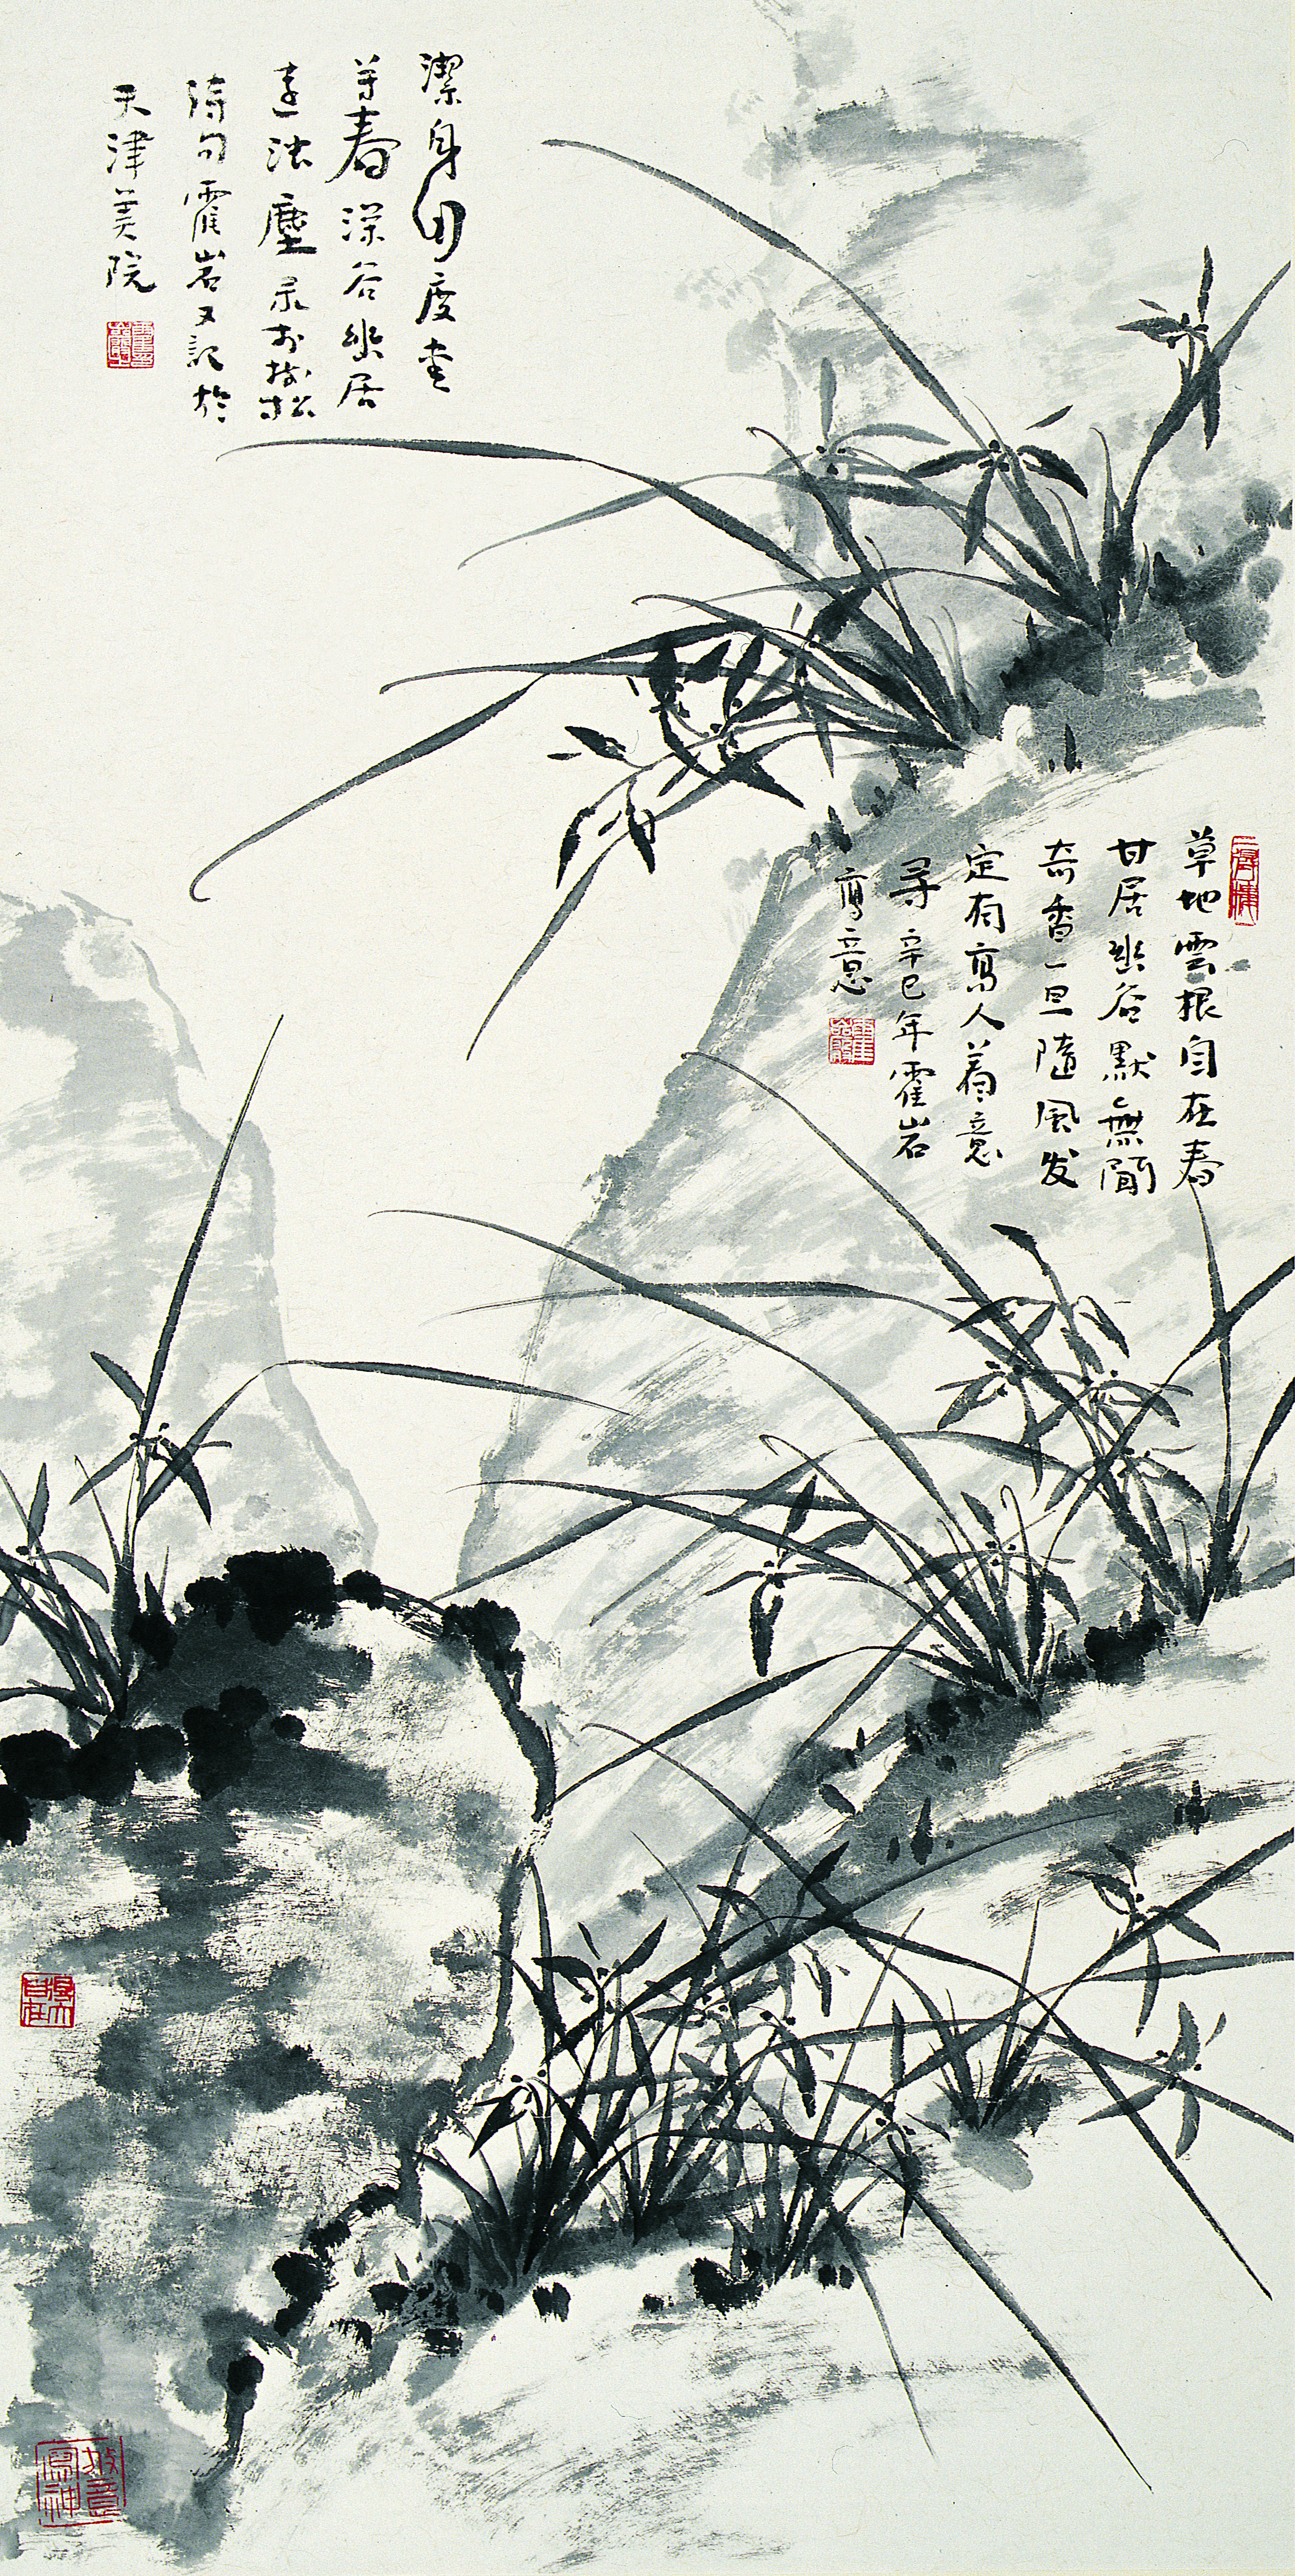 草地雲根自在春
甘居幽谷默無聞
奇香一旦隨風发
定有高人着意
尋 辛巳年霍岩
寫意
潔身度
等春 深谷幽居
遠浊塵 录松
濤句 霍岩又記於
天津美院
得大自在